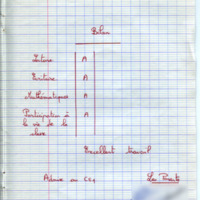 Bilan
Lecture A
Ecriture A
Mathématiques A
Participation à A
la vie de la
classe
Excellent travail
Admise au CE1
Les Parents